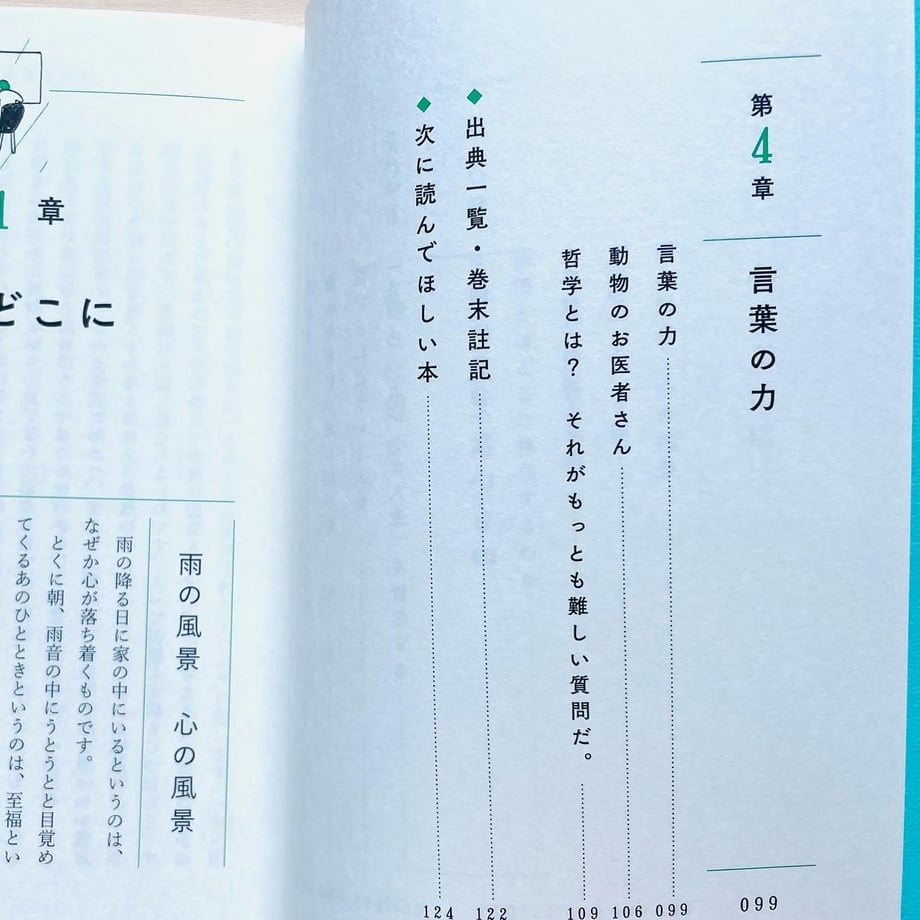 第4章
言葉の力
099
言葉の力 099
動物のお医者さん 106
哲学とは? それがもっとも難しい質問だ。 109
◆出典一覧・巻末註記 122
◆次に読んでほしい本 124
1章
どこに
雨の風景 心の風景
雨の降る日に家の中にいるというのは、
なぜか心が落ち着くものです。
とくに朝、雨音の中にうとうとと目覚め
てくるあのひとときというのは、至福とい